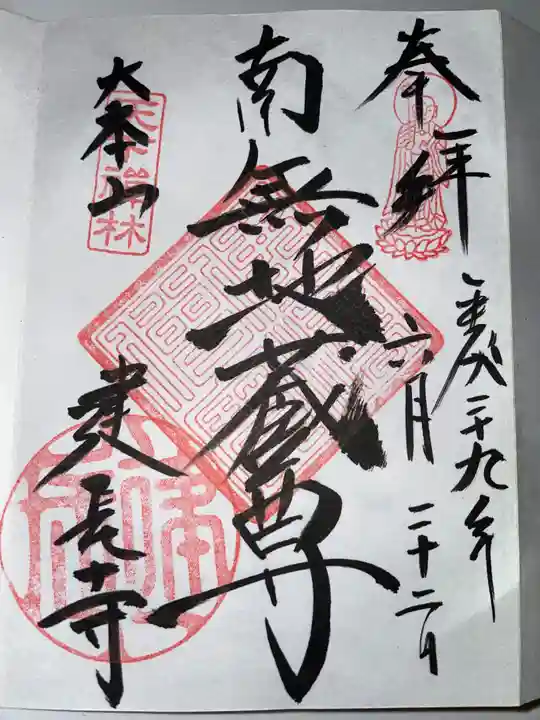 奉拝
平成二十九年
六月二十二日
南無地蔵尊
大本山
建長寺
天下禅林